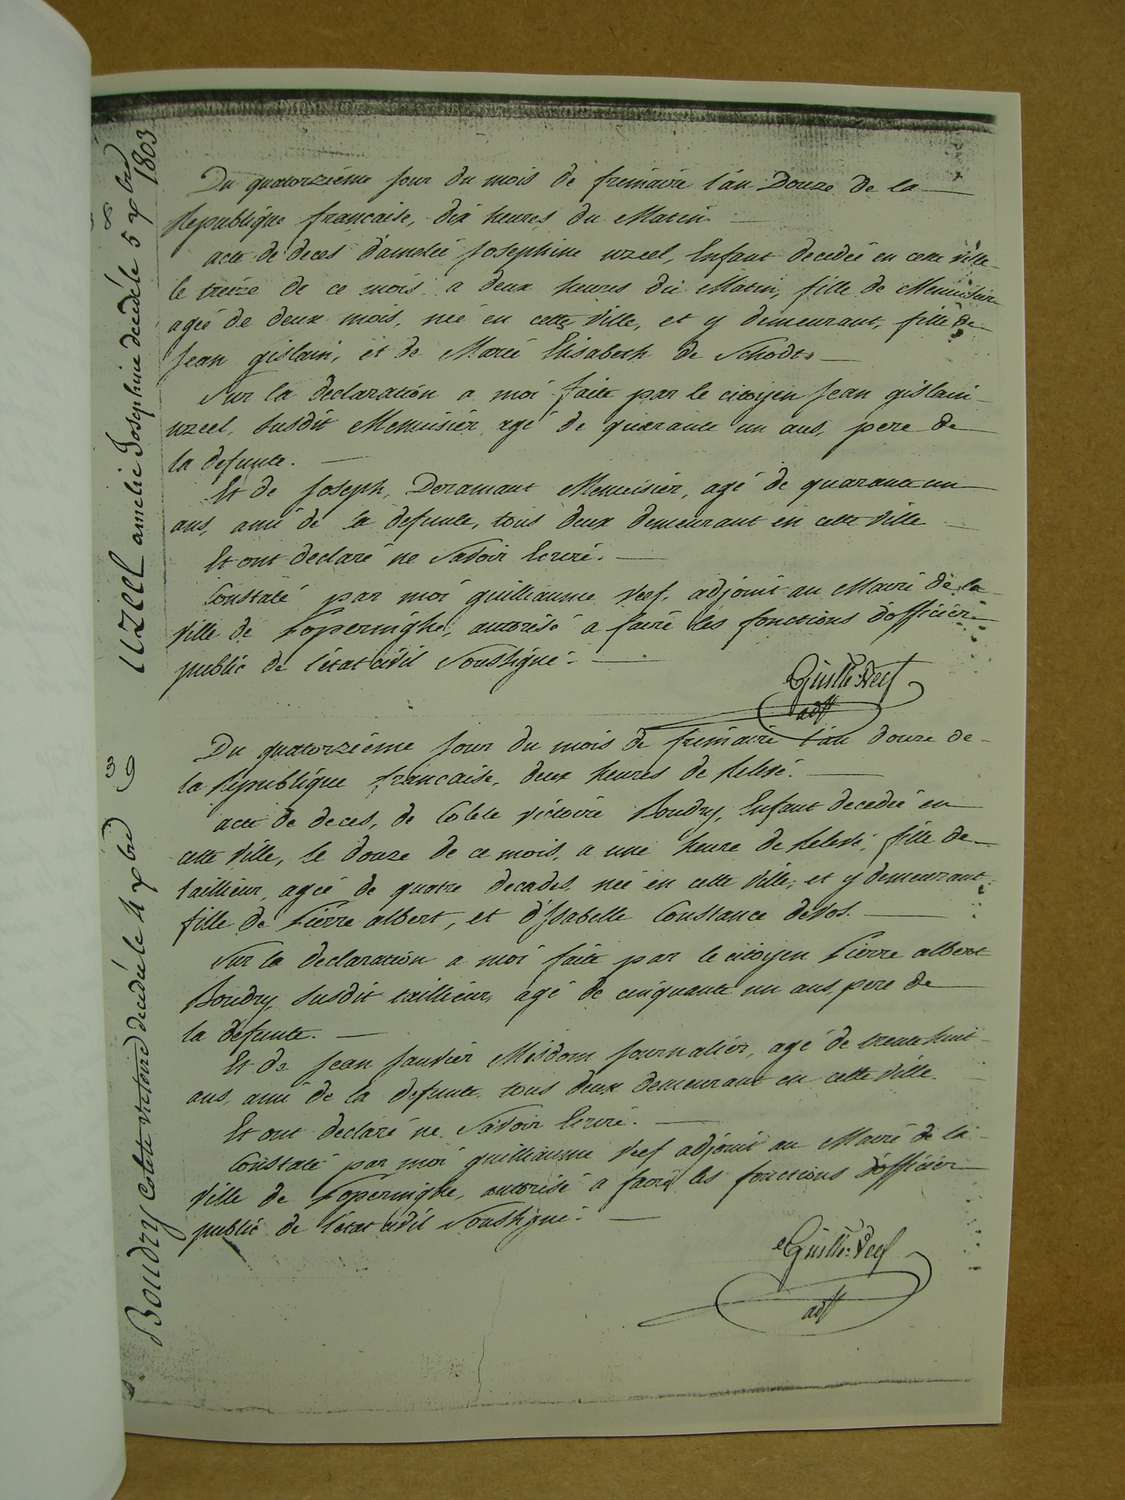 Du quatorzième jour du mois de frimaire l'an Douze de la
Republique française, dix heures du Matin.
acte de deces d'amelie Josephine uzeel, Enfant decedée en cette ville
le treize de ce mois a deux heures du Matin, fille de Menuisier
agée de deux mois, née en cette Ville, et y demeurant, fille de
Jean gislain, et de Marie Elisabeth de Schodt
Sur la declaration a moi faite par le citoyen Jean gislain
uzeel, susdit Menuisier agé de quarante un ans, pere de
la defunte.
Et de Joseph, Deramaut Menuisier, agé de quarante un
ans, ami de la defunte, tous deux demeurant en cette Ville
Et ont declaré ne Savoir Ecrire.
Constaté par moi guilliaume Veef, adjoint au Maire de la
Ville de Poperinghe, autorisé a faire les fonctions d'officier
public de l'état civil Soussigné.
Guille: Veef
adjt
UZEEL amelie Josephine decedé le 5 xbre 1803
Du quatorzième jour du mois de frimaire l'an douze de
la Republique française, deux heures de Relevé.
acte de deces, de Colete victoire Boudry, Enfant decedée en
cette Ville, le douze de ce mois, a une heure de Relevé, fille de
taillieur, agée de quatre decades, née en cette Ville, et y demeurant
fille de Pierre albert, et d'Isabelle Constance devos.
Sur la declaration a moi faite par le citoyen Pierre albert
Boudry, susdit taillieur, agé de cinquante un ans, pere de
la defunte.
Et de Jean Janvier Misdom Journalier, agé de trente huit
ans, ami de la defunte, tous deux demeurant en cette Ville
Et ont declaré ne Savoir Ecrire.
Constaté par moi guilliaume Veef adjoint au Maire de la
Ville de Poperinghe, autorisé a faire les fonctions d'officier
public de l'état civil Soussigné.
Guille: Veef
adjt
39
Boudry Colete victoire decedé le 4 xbre